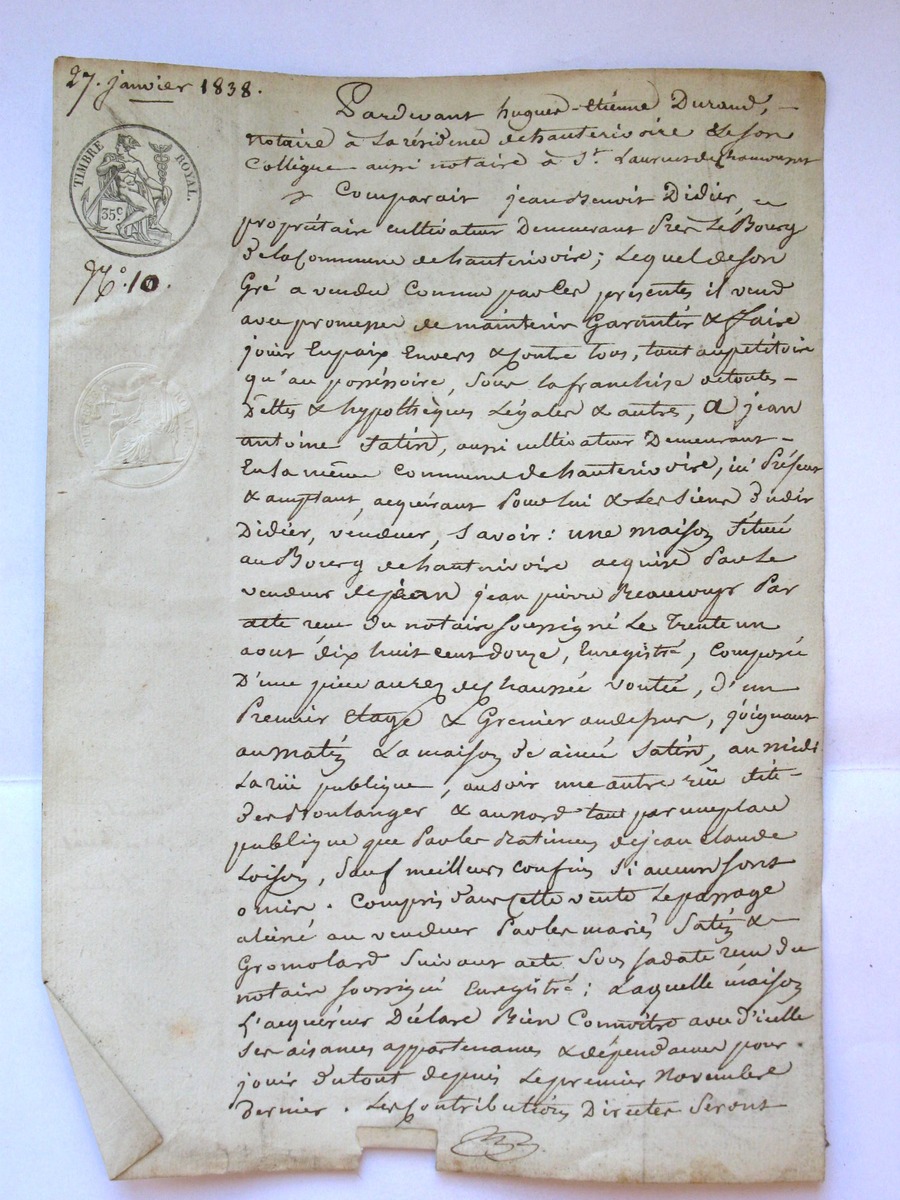 27. janvier 1838.
TIMBRE ROYAL.
35c.
N.o 10.
Pardevant hugues-etienne Durand,
notaire à La résidence de hauterivoire & Son
Collègue aussi notaire à St. Laurent de Chamousset
Comparait jean Benoit Didier,
propriétaire cultivateur Demeurant Près Le Bourg
de la Commune de hauterivoire; Lequel de Son
Gré a vendu Comme par Ces présentes il vend
avec promesse de maintenir Garantir & ffaire
jouir En paix Envers & Contre tous, tant au pétitoire
qu'au posséssoire, Sous la franchise de toutes
Dettes & hypothèques Légales & autres, A jean
antoine Satin, aussi cultivateur Demeurant
En la même Commune de hauterivoire, ici Présent
& acceptant, acquérant Pour lui & Les Siens dudit
Didier, vendeur, Savoir: une maison Située
au Bourg de hauterivoire acquise Par Le
vendeur de jean jean pierre Beaucoup Par
acte reçu du notaire Soussigné Le Trente un
aout dix huit cent douze, Enregistré, Composée
D'une pièce au rez de Chaussée voutée, d'un
Premier Etage & Grenier au dessus, joignant
au matin La maison de aimé Satin, au midi
La rue publique, au soir une autre rüe dite
des Boulanger & au nord tant par une place
publique que Par les Batimens de jean claude
Loison, Sauf meilleurs confins Si aucuns sont
omis. Compris dans Cette vente Le passage
aliéné au vendeur Par les mariés Satin &
Gromolard Suivant acte Sous Sa date reçu du
notaire Soussigné Enregistré; Laquelle maison
L'acquéreur Déclare Bien Connoitre avec d'icelle
Ses aisances appartenances & dépendances pour
jouir du tout depuis Le premier Novembre
dernier. Les Contributions Directes Seront